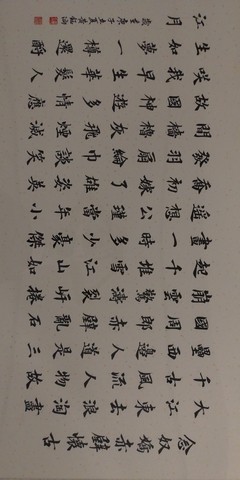 念奴嬌赤壁懷古
大江東去浪淘盡
千古風流人物故
壘西邊人道是三
國周郎赤壁亂石
崩雲驚濤裂岸捲
起千堆雪江山如
畫一時多少豪傑
遙想公瑾當年小
喬初嫁了雄姿英
發羽扇綸巾談笑
間檣櫓灰飛煙滅
故國神遊多情應
咲我早生華髮人
生如夢一樽還酹
江月